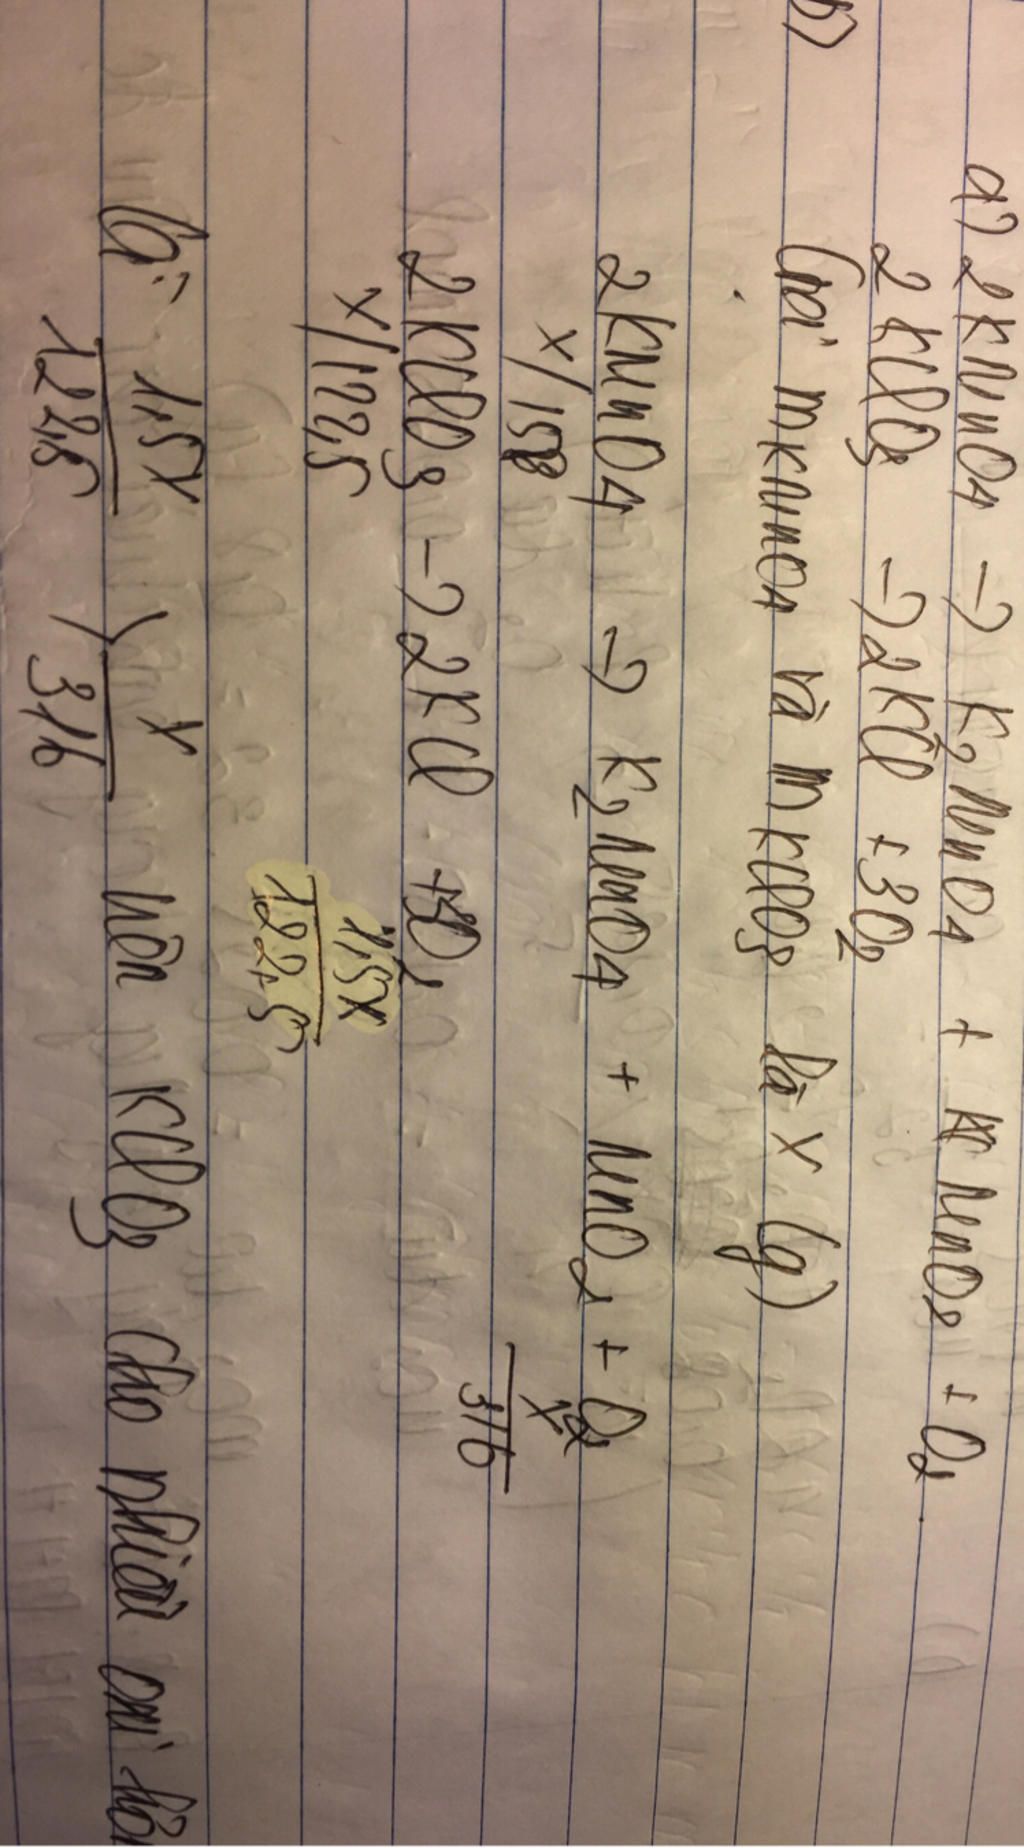 a) 2KMnO4 -> K2MnO4 + MnO2 + O2
2KClO3 -> 2KCl + 3O2
b)
Gọi mKMnO4 và mKClO3 là x (g)
2KMnO4 -> K2MnO4 + MnO2 + O2
x/158 x/316
2KClO3 -> 2KCl + 3O2
x/122,5 1,5x/122,5
Có: 1,5x/122,5 > x/316 nên KClO3 cho nhiều oxi